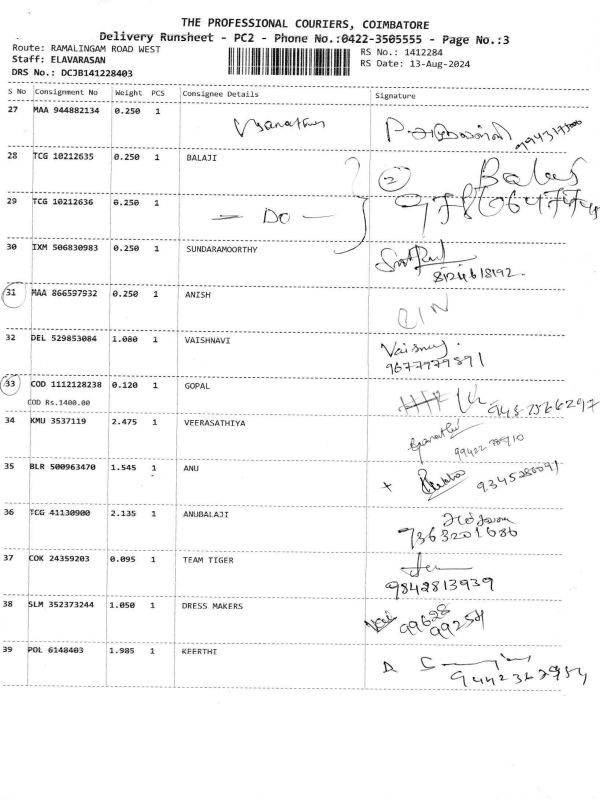 THE PROFESSIONAL COURIERS, COIMBATORE
Delivery Runsheet - PC2 - Phone No.:0422-3505555 - Page No.:3
Route: RAMALINGAM ROAD WEST RS No.: 1412284
Staff: ELAVARASAN RS Date: 13-Aug-2024
DRS No.: DCJB141228403
S No Consignment No Weight PCS Consignee Details Signature
27 MAA 944882134 0.250 1
28 TCG 10212635 0.250 1 BALAJI 2
29 TCG 10212636 0.250 1 - DO -
30 IXM 506830983 0.250 1 SUNDARAMOORTHY
8124618192
31 MAA 866597932 0.250 1 ANISH
32 DEL 529853084 1.080 1 VAISHNAVI
9677979891
33 COD 1112128238 0.120 1 GOPAL
COD Rs.1400.00
34 KMU 3537119 2.475 1 VEERASATHIYA
35 BLR 500963470 1.545 1 ANU
36 TCG 41130900 2.135 1 ANUBALAJI
7363201686
37 COK 24359203 0.095 1 TEAM TIGER
9842813939
38 SLM 352373244 1.050 1 DRESS MAKERS
99628
99251
39 POL 6148403 1.985 1 KEERTHI